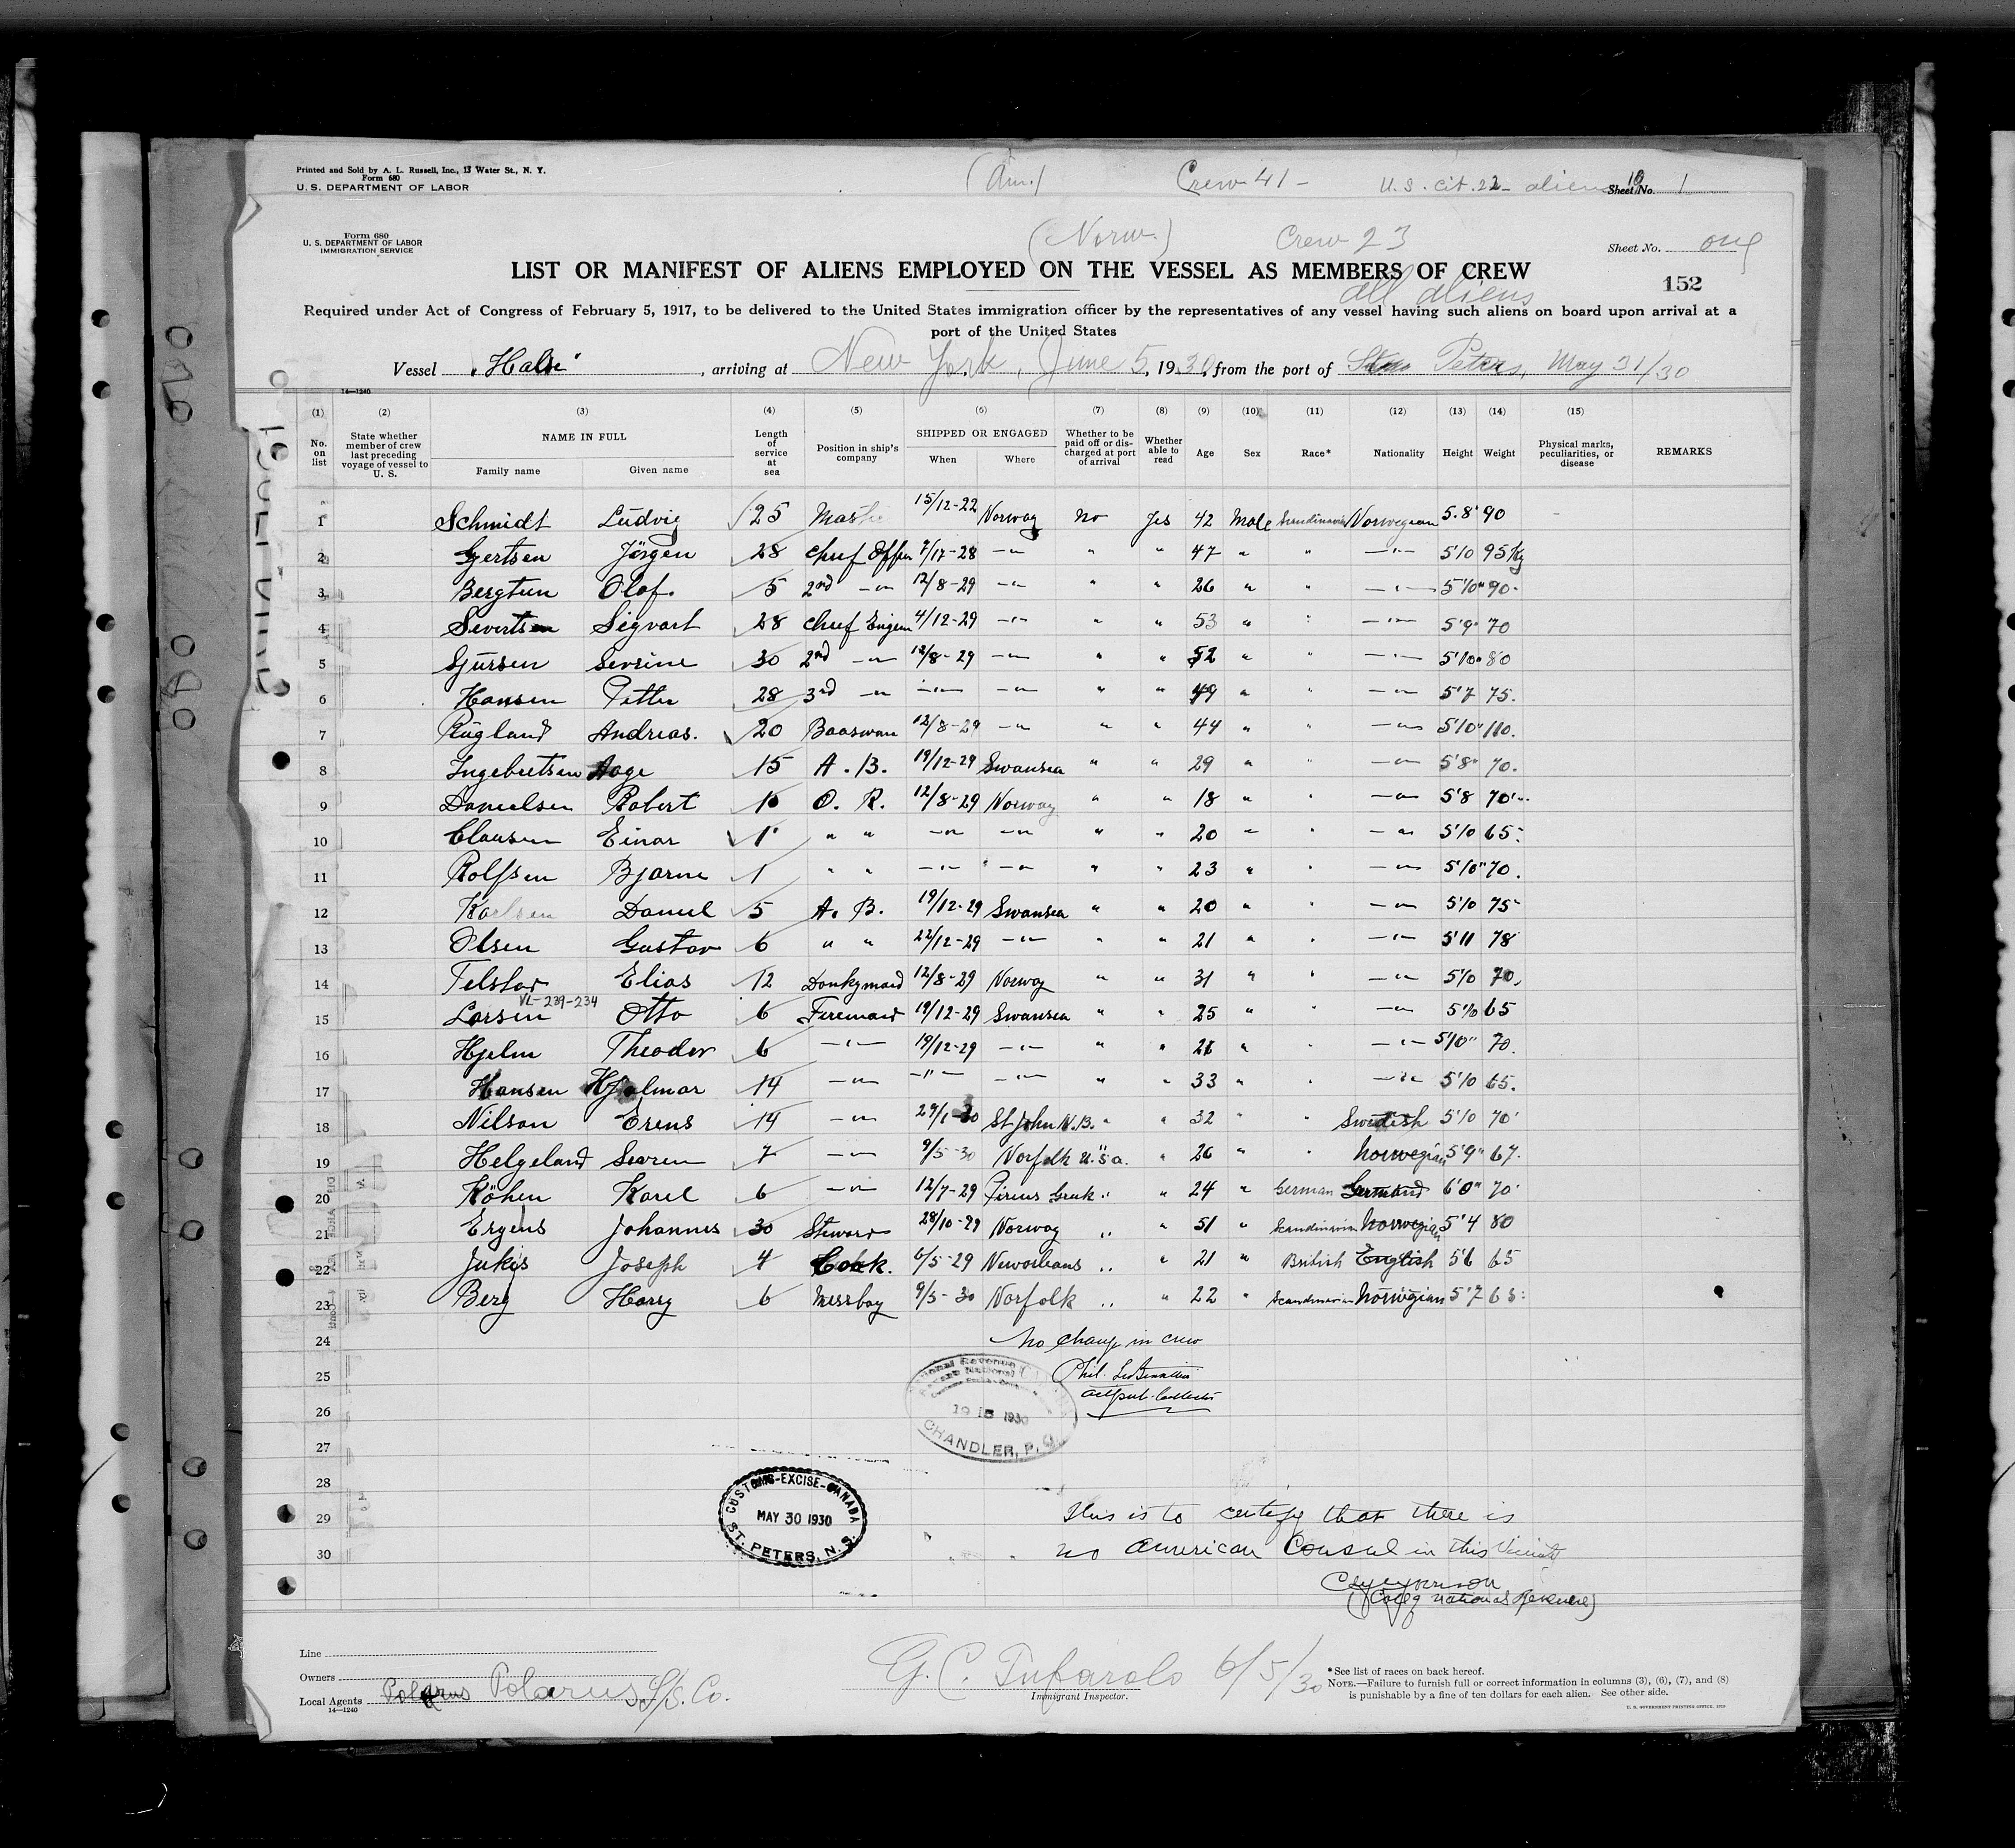 Printed and Sold by A. L. Russell, Inc., 13 Water St., N. Y.
Form 680
U. S. DEPARTMENT OF LABOR
(Am.) Crew 41 - U. S. cit. 22 - aliens 19 Sheet No. 1
Form 680
U. S. DEPARTMENT OF LABOR
IMMIGRATION SERVICE
(Norw.) Crew 23 Sheet No. one
LIST OR MANIFEST OF ALIENS EMPLOYED ON THE VESSEL AS MEMBERS OF CREW
all aliens 152
Required under Act of Congress of February 5, 1917, to be delivered to the United States immigration officer by the representatives of any vessel having such aliens on board upon arrival at a
port of the United States
Vessel "Halse", arriving at New York, June 5, 1930, from the port of Peters, May 31/30
14-1240
(1) (2) (3) (4) (5) (6) (7) (8) (9) (10) (11) (12) (13) (14) (15)
No. on list State whether member of crew last preceding voyage of vessel to U. S. NAME IN FULL Family name Given name Length of service at sea Position in ship's company SHIPPED OR ENGAGED When Where Whether to be paid off or discharged at port of arrival Whether able to read Age Sex Race* Nationality Height Weight Physical marks, peculiarities, or disease REMARKS
1 Schmidt Ludvig 25 Master 15/12-22 Norway No Yes 42 Male Scandinavia Norwegian 5.8" 90
2 Gjertsen Jörgen 28 Chief Officer 7/17-28 -"- " " 47 " " -"- 5'10 95 Kg
3 Bergtun Olof. 5 2nd -"- 12/8-29 -"- " " 26 " " -"- 5'10" 90-
4 Sivertsen Sigvart 28 Chief Engin 4/12-29 -"- " " 53 " " -"- 5'9" 70
5 Sjursen Sevrine 30 2nd -"- 12/8-29 -"- " " 52 " " -"- 5'10" 80
6 Hansen Petter 28 3rd -"- -"- -"- " " 49 " " -"- 5'7 75.
7 Rugland Andreas. 20 Baasman 12/8-29 -"- " " 44 " " -"- 5'10" 110.
8 Ingebretsen Aage 15 A. B. 19/12-29 Swansea " " 29 " " -"- 5'8" 70.
9 Danielsen Robert 10 O. R. 12/8-29 Norway " " 18 " " -"- 5'8 70
10 Clausen Einar 1 " " -"- -"- " " 20 " " -"- 5'10 65
11 Rolfsen Bjarne 1 " " -"- -"- " " 23 " " -"- 5'10" 70.
12 Karlsen Daniel 5 A. B. 19/12-29 Swansea " " 20 " " -"- 5'10 75-
13 Olsen Gustav 6 " " 22/12-29 -"- " " 21 " " -"- 5'11 78
14 Telstar Elias 12 Donkymand 12/8-29 Norway " " 31 " " -"- 5'10 70.
VL-239-234
15 Larsen Otto 6 Firemand 19/12-29 Swansea " " 25 " " -"- 5'10 65
16 Hjelm Theodor 6 -"- 19/12-29 -"- " " 26 " " -"- 5'10" 70.
17 Hansen Hjalmar 14 -"- -"- -"- " " 33 " " -"- 5'10 65.
18 Nilson Erens 14 -"- 29/1-30 St John N.B. " " 32 " " Swedish 5'10 70
19 Helgeland Sevren 7 -"- 9/5-30 Norfolk U.S.a. " " 26 " " Norwegian 5'9" 67.
20 Köhen Karel 6 -"- 12/7-29 Pireus Greek " " 24 " German Germand 6'0" 70
21 Ergens Johannes 30 Steward 28/10-29 Norway " " 51 " Scandinavian Norwegian 5'4 80
22 Jukes Joseph 4 Cook. 6/5-29 Neworleans " " 21 " British English 5'6 65
23 Berg Harry 6 Messboy 9/5-30 Norfolk " " 22 " Scandinavian Norwegian 5'7 65
24 No change in crew
25 Phil.
26
27
28
29
30
1930
CHANDLER, P. Q.
CUSTOMS-EXCISE-CANADA
MAY 30 1930
ST. PETERS, N. S.
This is to certify that there is
no American Consul in this Vicinity
(Colle National Revenue)
Line
Owners
Local Agents Polarus Polarus S/S. Co.
14-1240
G. C. Tufarolo 6/5/30
Immigrant Inspector.
*See list of races on back hereof.
NOTE.—Failure to furnish full or correct information in columns (3), (6), (7), and (8)
is punishable by a fine of ten dollars for each alien. See other side.
U. S. GOVERNMENT PRINTING OFFICE